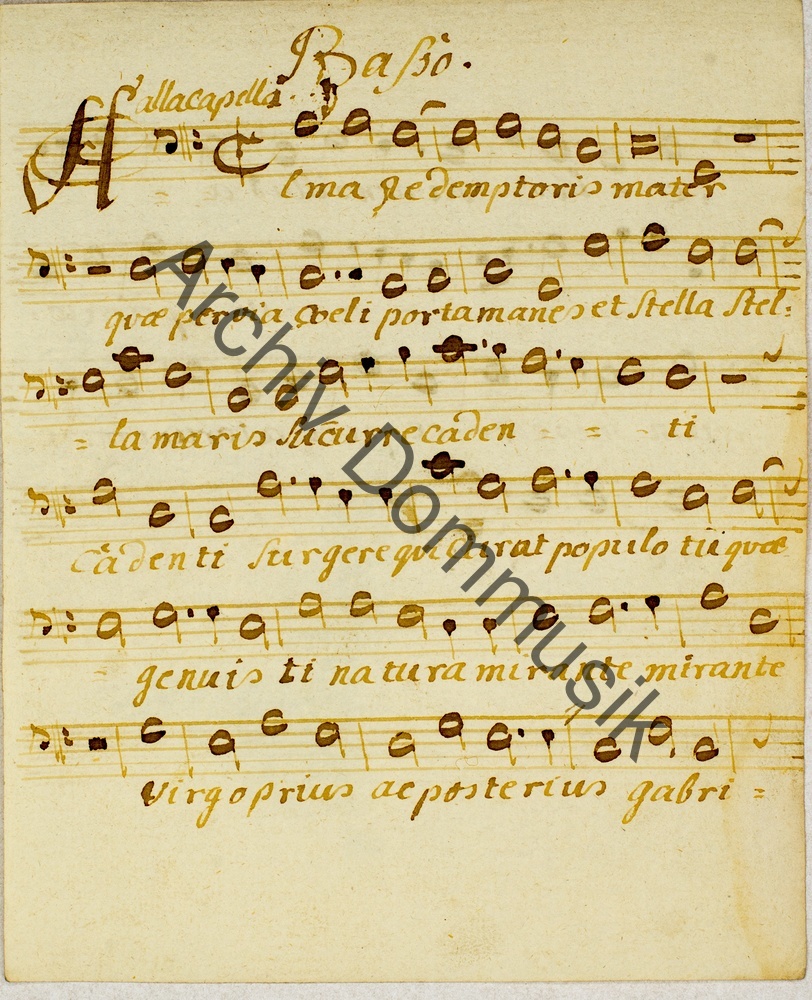 Basso.
alla capella
Alma Redemptoris mater
quæ pervia Coeli porta manes et stella stel:
= la maris sucurre caden - = - ti
cadenti surgere qui curat populo tu quæ
genuis ti natura mirante mirante
Virgo prius ac posterius gabri =
Archiv Dommusik